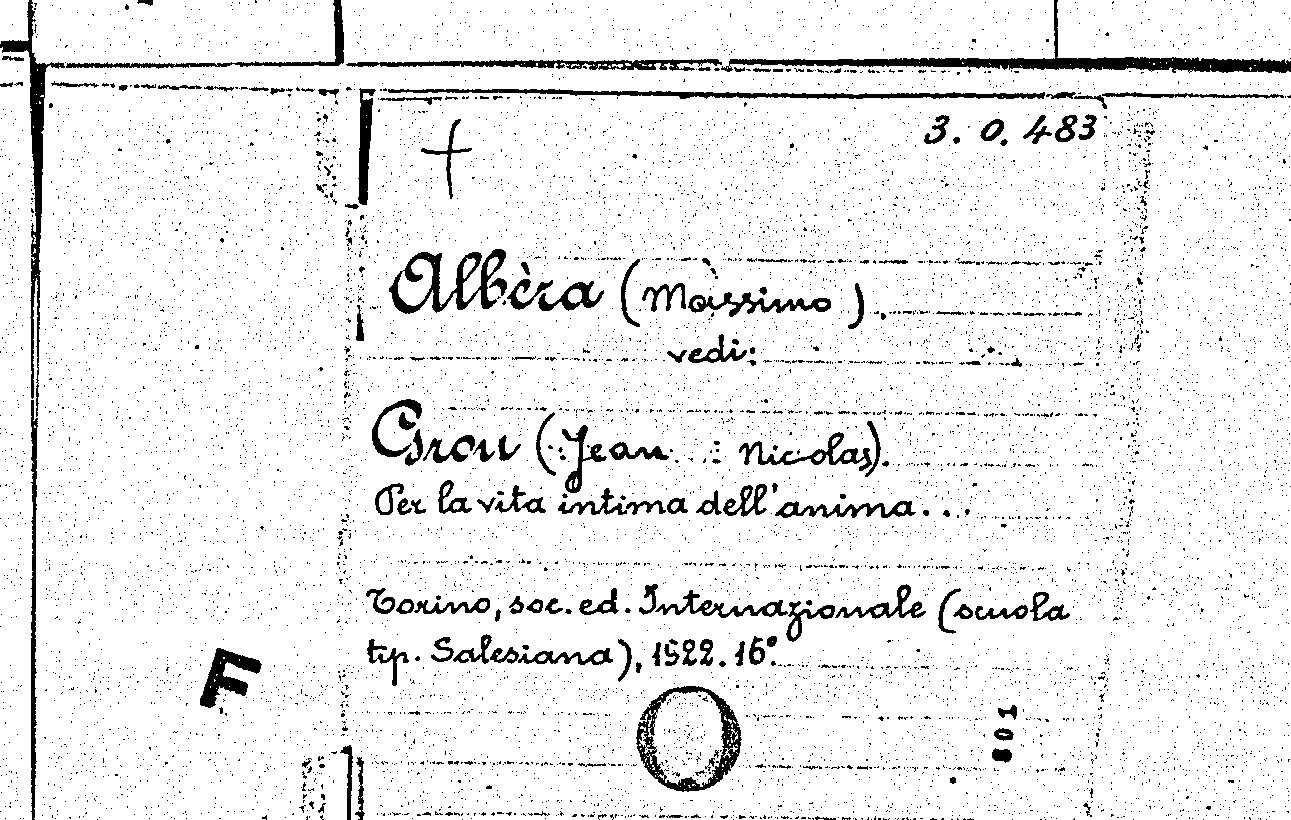 3. O. 483
Albèra (Massimo).
vedi:
Grou (: Jean : Nicolas).
Per la vita intima dell'anima...
Torino, soc. ed. Internazionale (scuola
tip. Salesiana), 1922. 16°.
F
801